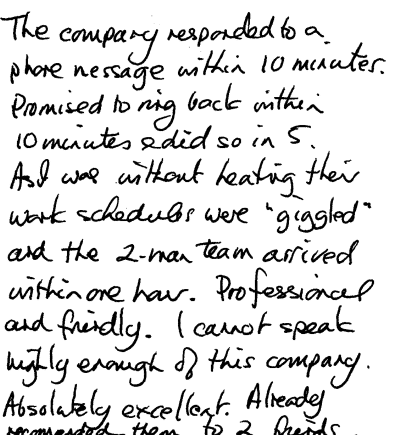 The company responded to a
phone message within 10 minutes.
Promised to ring back within
10 minutes & did so in 5.
As I was without heating their
work schedules were "giggled"
and the 2-man team arrived
within one hour. Professional
and friendly. I cannot speak
highly enough of this company.
Absolutely excellent. Already
recommended them to 2 friends.